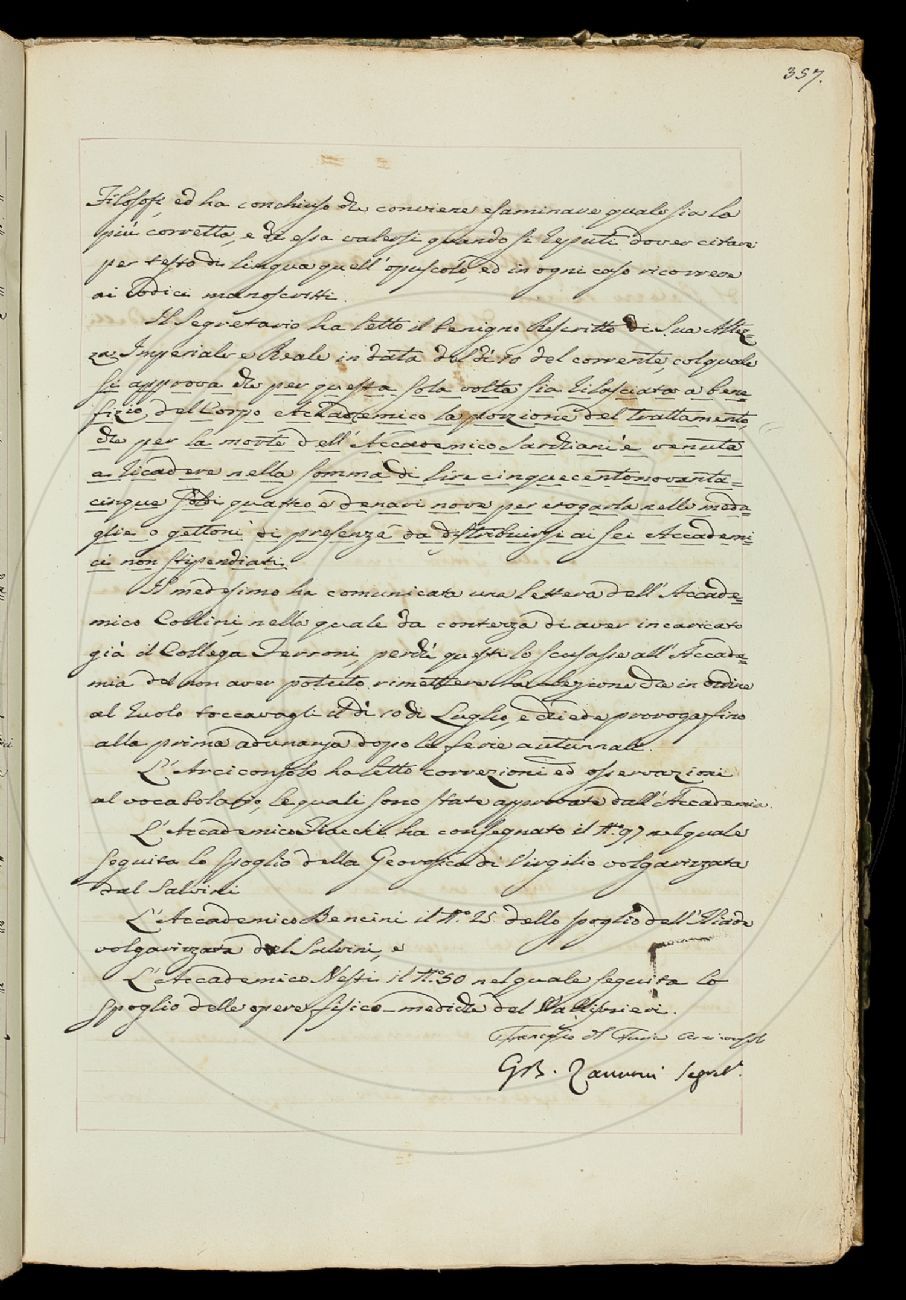 357.
Filosofi, ed ha conchiuso che conviene esaminare quale sia la
più corretta, e di essa valersi quando si reputi dover citare
per testo di lingua quell'opuscolo, ed in ogni caso ricorrere
ai Codici manoscritti.
Il Segretario ha letto il benigno Rescritto di Sua Altez=
za Imperiale e Reale in data del dì 10 del corrente, col quale
si approva che per questa sola volta sia rilasciata a bene=
fizio del Corpo Accademico la porzione del trattamento,
che per la morte dell'Accademico Sardiani è venuta
a ricadere nella somma di lire cinquecentonovanta=
cinque soldi quattro e denari nove per erogarla nelle meda=
glie o gettoni di presenza da distribuirsi ai sei Accademi=
ci non stipendiati.
Il medesimo ha comunicata una lettera dell'Accade=
mico Collini, nella quale dà contezza di aver incaricato
già il Collega Ferroni, perchè questi lo scusasse all'Accade=
mia del non aver potuto rimettere la Lezione che in ordine
al Ruolo toccavagli il dì 10 di Luglio, e chiede proroga fino
alla prima adunanza dopo le ferie autunnali.
L'Arciconsolo ha letto correzioni ed osservazioni
al vocabolario, le quali sono state approvate dall'Accademia.
L'Accademico Fiacchi ha consegnato il N.º 97 nel quale
seguita lo spoglio della Georgica di Virgilio volgarizzata
dal Salvini
L'Accademico Bencini il N.º 25 dello spoglio dell'Iliade
volgarizzata dal Salvini, e
L'Accademico Nesti il N.º 30 nel quale seguita lo
spoglio delle opere fisico-mediche del Vallisnieri.
Francesco del Furia Arciconsolo
GB. Zannoni Segret.º